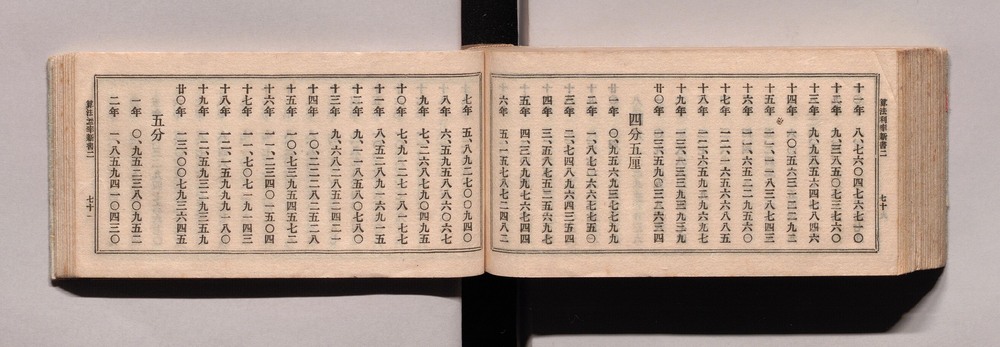 算法利率新書二
十一年 八、七六〇四七六七一〇
十二年 九、三八五〇七三七六〇
十三年 九、九八五六四七八四六
十四年 一〇、五六三一二二九二
十五年 一一、一一八三八七四三
十六年 一一、六五二二九五六〇
十七年 一二、一六五六六八八五
十八年 一二、六五九二九六九七
十九年 一三、一三三九三九三九
廿〇年 一三、五九〇三二六三四
四分五厘
一年 〇、九五六九三七七九九
二年 一、八七二六六七七五〇
三年 二、七四八九六四三五四
四年 三、五八七五二五六九七
五年 四、三八九九七六七四四
六年 五、一五七八七二四八二
七年 五、八九二七〇〇九四〇
八年 六、五九五八八六〇六七
九年 七、二六八七九〇四九五
十〇年 七、九一二七一八一七七
十一年 八、五二八九一六九一五
十二年 九、一一八五八〇七八〇
十三年 九、六八二八五二四二一
十四年 一〇、二二二八二五二八
十五年 一〇、七三九五四五七二
十六年 一一、二三四〇一五〇四
十七年 一一、七〇七一九一四三
十八年 一二、一五九九九一八〇
十九年 一二、五九三二九三五九
廿〇年 一三、〇〇七九三六四五
五分
一年 〇、九五二三八〇九五二
二年 一、八五九四一〇四三〇
算法利率新書二